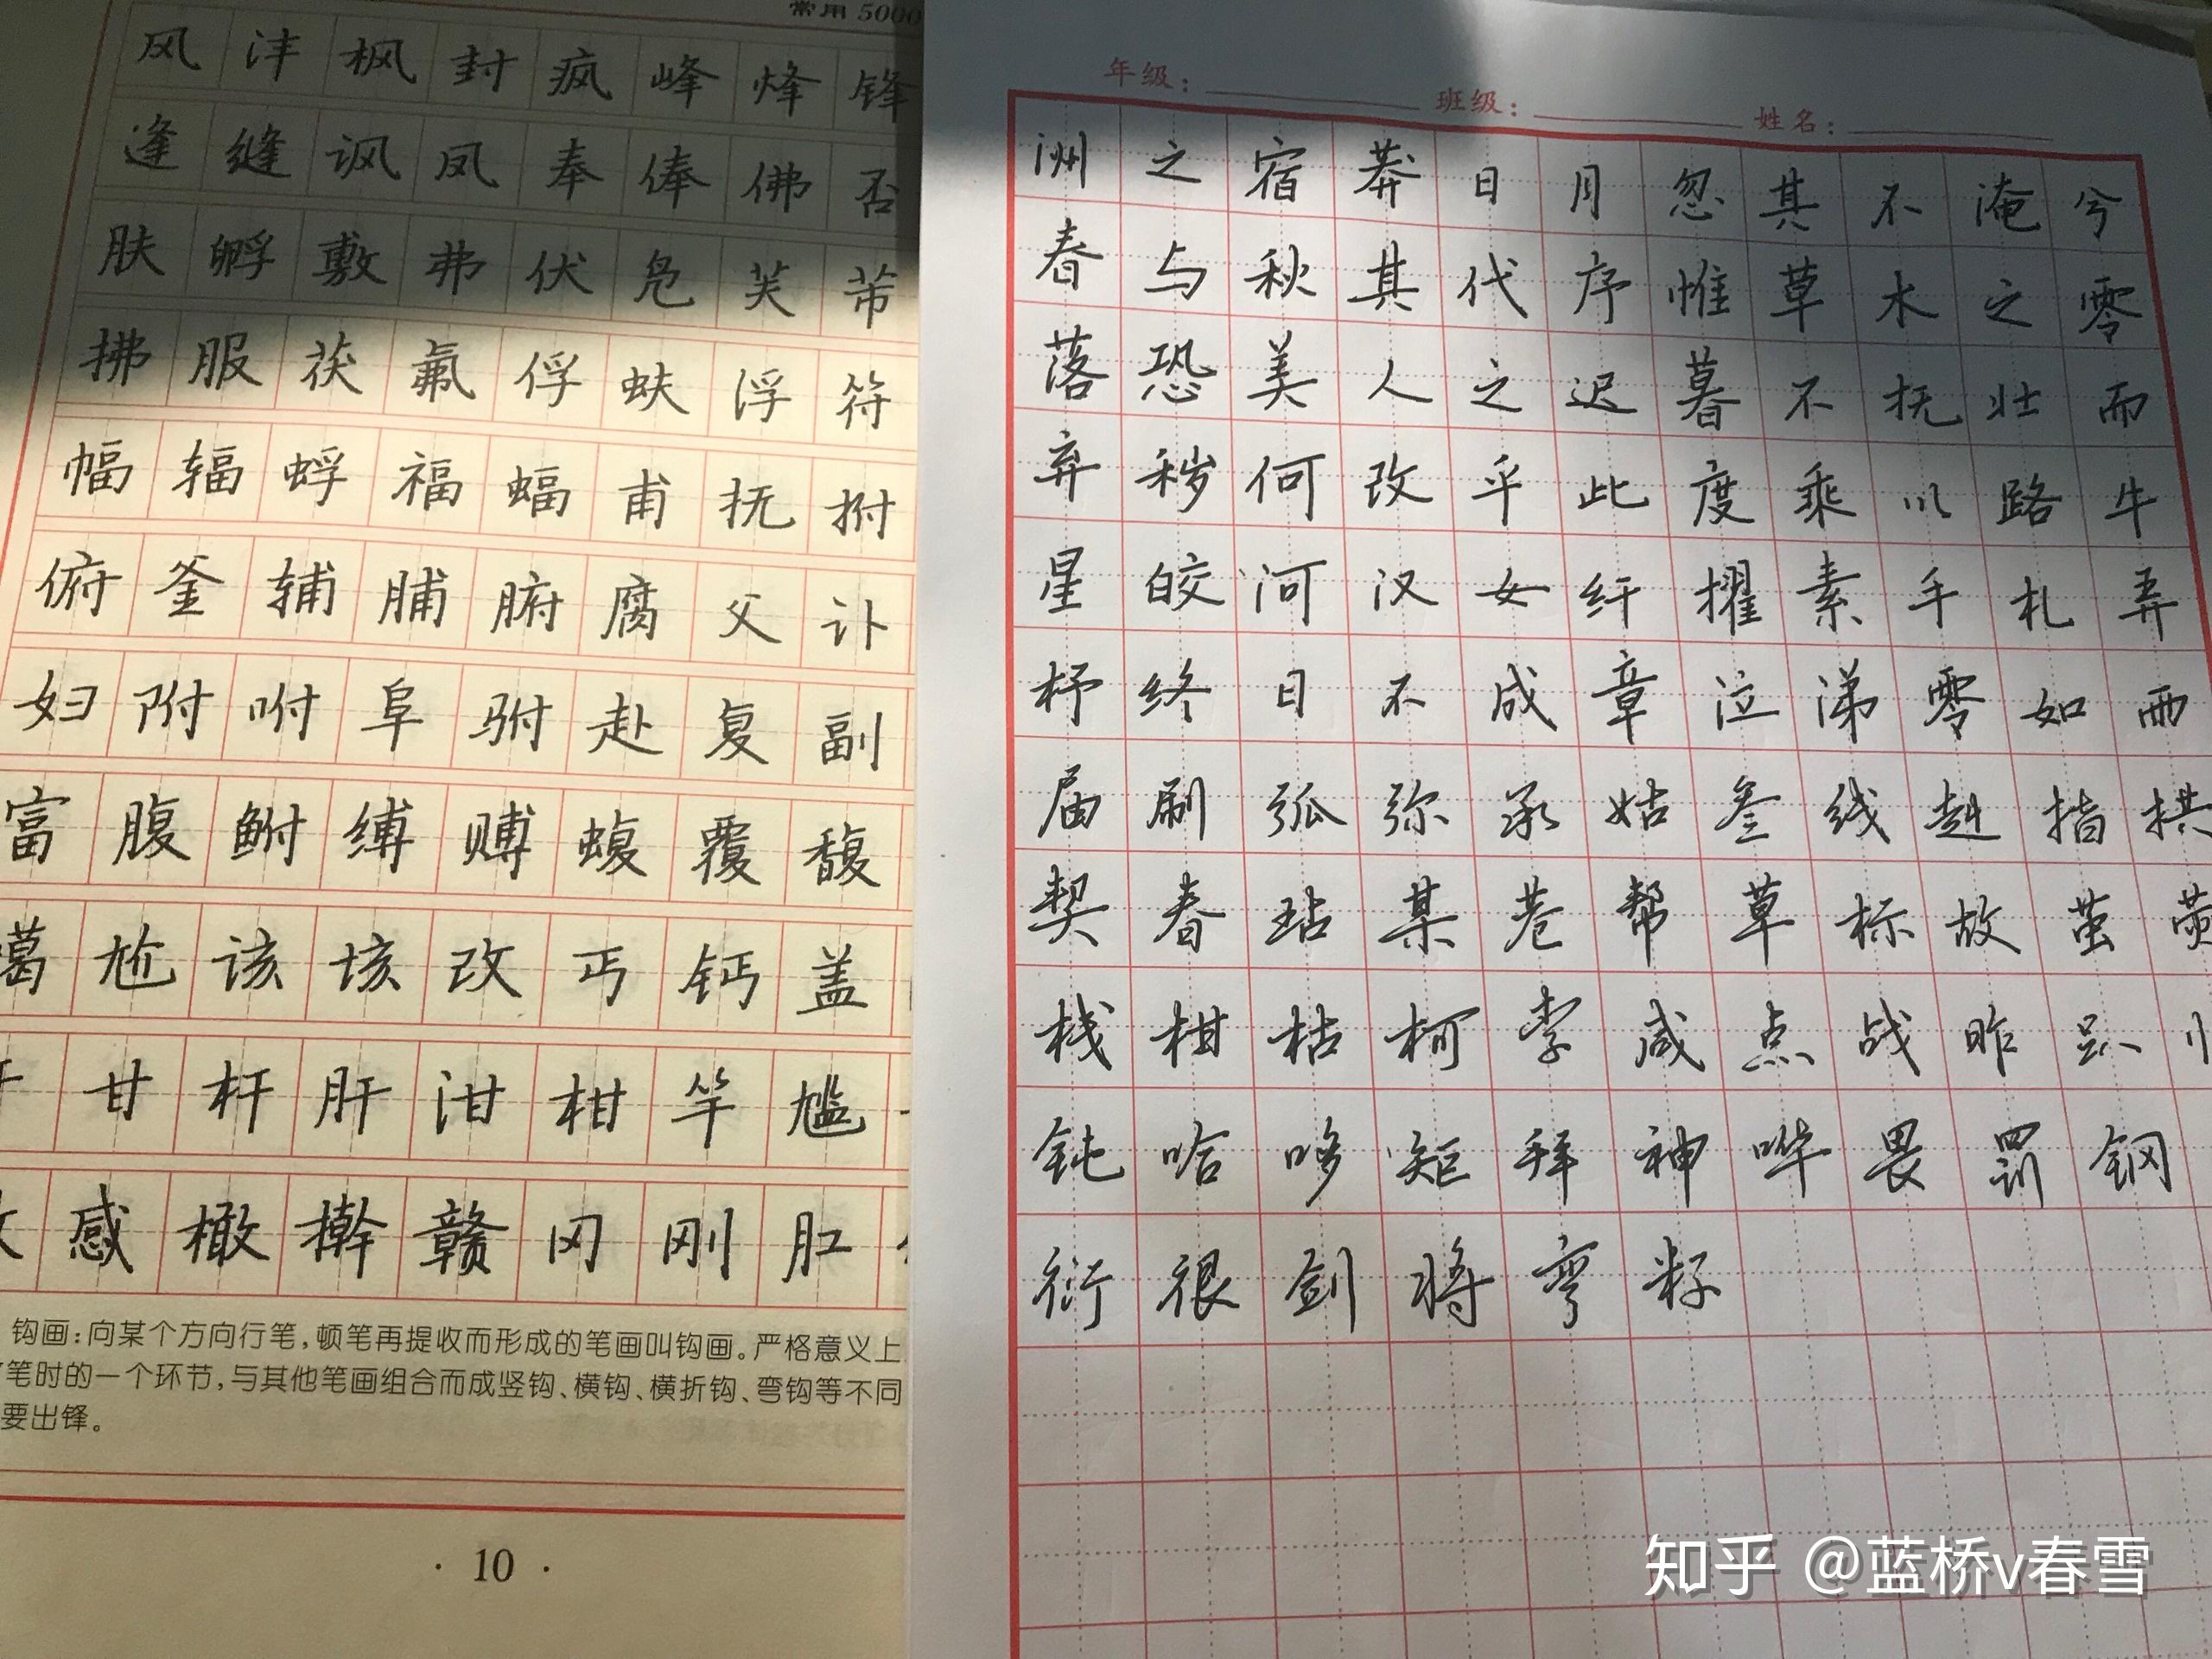 常用 5000
风 沣 枫 封 疯 峰 烽 锋
逢 缝 讽 凤 奉 俸 佛 否
肤 孵 敷 弗 伏 凫 芙 芾
拂 服 茯 氟 俘 蚨 浮 符
幅 辐 蜉 福 蝠 甫 抚 拊
俯 釜 辅 脯 腑 腐 父 讣
妇 附 咐 阜 驸 赴 复 副
富 腹 鲋 缚 赙 蝮 覆 馥
噶 尬 该 垓 改 丐 钙 盖
甘 杆 肝 泔 柑 竿 尴
感 橄 擀 赣 冈 刚 肛
钩画:向某个方向行笔,顿笔再提收而形成的笔画叫钩画。严格意义上
笔时的一个环节,与其他笔画组合而成竖钩、横钩、横折钩、弯钩等不同
要出锋。
· 10 ·
年级: 班级: 姓名:
洲 之 宿 莽 日 月 忽 其 不 淹 兮
春 与 秋 其 代 序 惟 草 木 之 零
落 恐 美 人 之 迟 暮 不 抚 壮 而
弃 秽 何 改 乎 此 度 乘 以 路 牛
星 皎 河 汉 女 纤 擢 素 手 札 弄
杼 终 日 不 成 章 泣 涕 零 如 雨
届 刷 弧 弥 承 姑 叁 线 赴 指 拱
契 春 玷 某 巷 帮 草 标 故 茧 荧
栈 柑 枯 柯 李 咸 点 战 昨
钝 哈 哆 矩 拜 神 哗 畏 罚 钢
衍 很 剑 将 弯 籽
知乎 @蓝桥v春雪